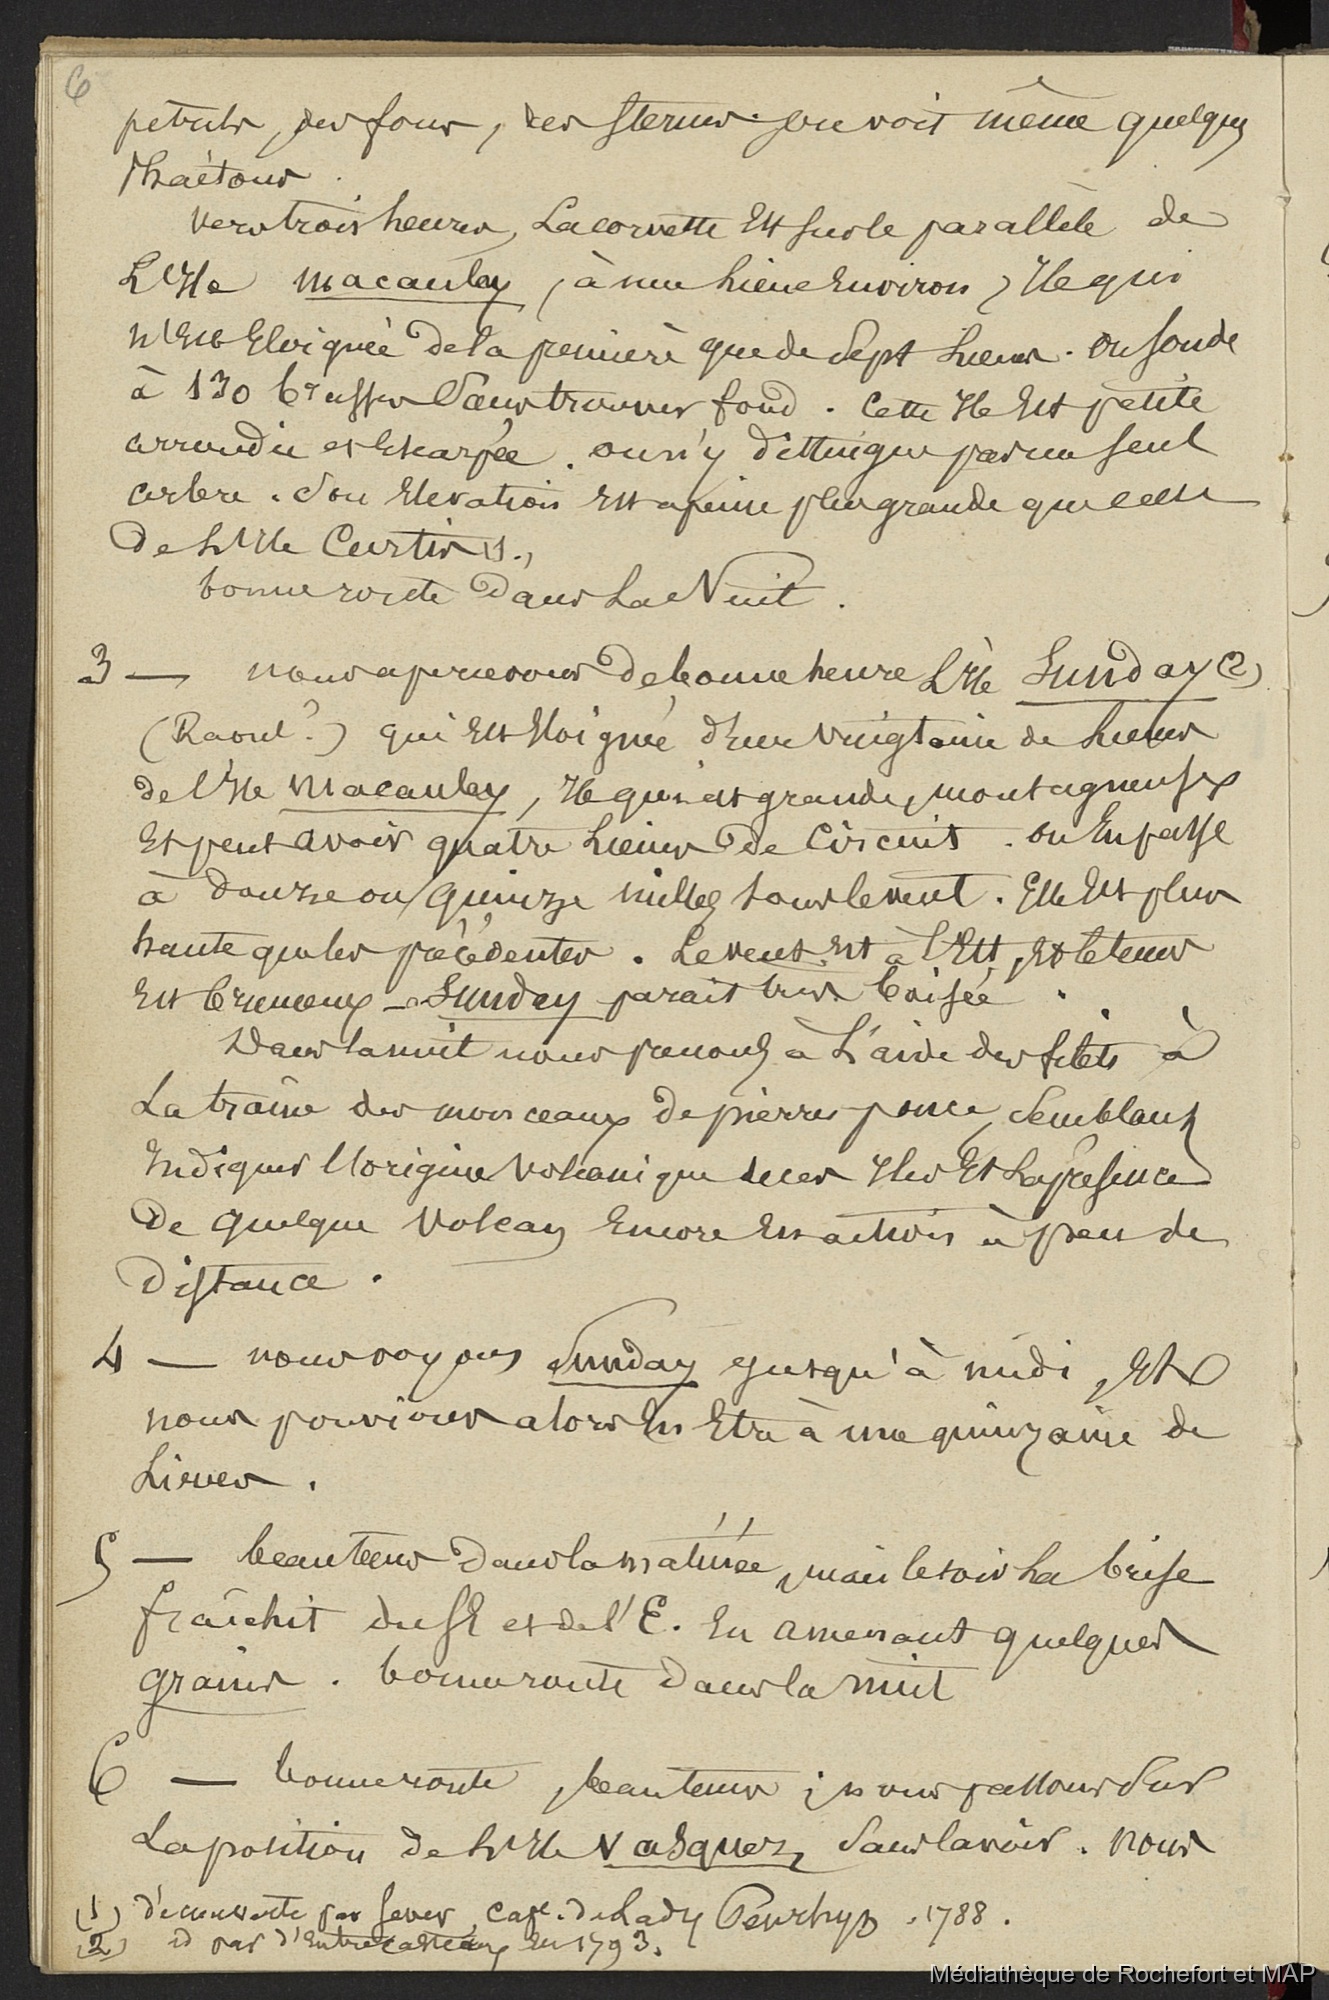 6
petrels, des fous, des sternes. on voit même quelques
Phaétons.
vers trois heures, La corvette Est sur le parallèle de
L'Ile Macauley, à une lieue Environ, Ile qui
n'Est Eloignée de la première que de Sept lieues. on sonde
à 130 brasses Sans trouver fond. Cette Ile Est petite
arrondie et Escarpée. on n'y distingue pas un seul
arbre. Son Elevation Est a peine plus grande que celle
de L'Ile Curtis (1.)
bonne route Dans La Nuit.
3 — nous apercevons De bonne heure L'Ile Sunday (2)
(Raoul?) qui Est Eloignée d'Une Vingtaine de lieues
de l'Ile Macauley, Ile qui est grande, montagneuse
Et peut avoir quatre lieues De Circuit. On En passe
à douze ou quinze milles sous le vent. Elle Est plus
haute que les précédentes. Le vent Est à l'Est, Et le tems
Est brumeux – Sunday parait très boisée.
Dans la nuit nous prenons à L'aide des filets à
La traîne des morceaux De pierres ponce, Semblant
Indiquer l'origine Volcanique de ces Iles Et La présence
De quelque Volcan Encore En action à peu de
Distance.
4 — nous voyons Sunday jusqu'à midi, Et
nous pouvions alors En Etre à une quinzaine de
Lieues.
5 — beau tems Dans la matinée, mais le soir La brise
fraîchit du SE et de l'E. En amenant quelques
grains. bonne route Dans la nuit
6 — bonne route, beau tems ; nous passons Sur
La position de L'Ile Vasquez, Sans la voir. nous
(1) découverte par Sever, Cape. de Lady Penrhyn, 1788.
(2) id par d'Entrecasteaux En 1793.
Médiathèque de Rochefort et MAP